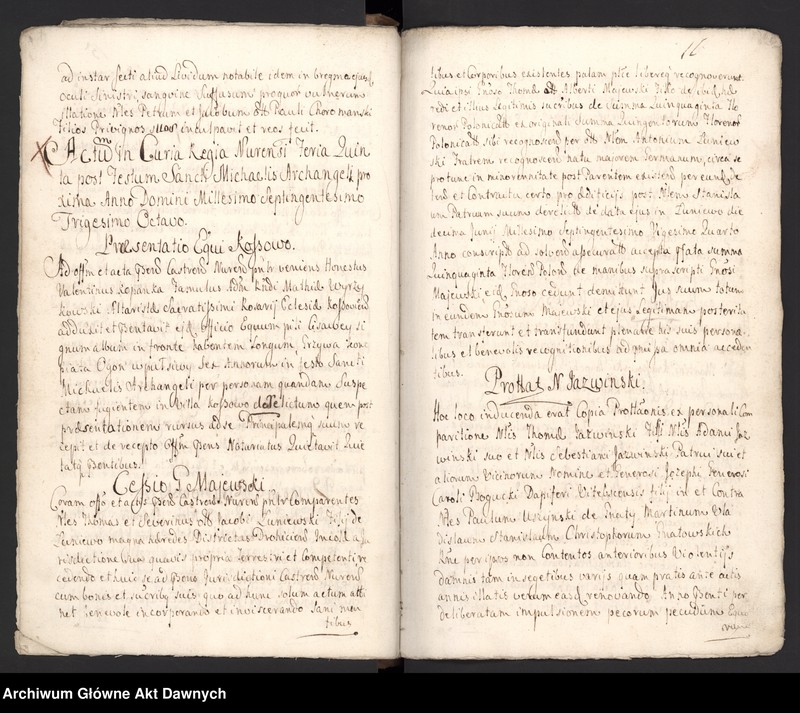 ad instar secti aliud Lividum notabile idem in bregma ejusd
oculi Sinistri, sanguine Suffusum proquor vulnerum
illatione Nles Petrum et Jacobum olim Pauli Choromanski
Filios Privignos suos inculpavit et reos fecit.
Actum in Curia Regia Nurensi Feria Quin
ta post Festum Sancti Michaelis Archangeli pro
xima Anno Domini Millesimo Septingentesimo
Trigesimo Octavo.
Præsentatio Equi Kossowo.
Ad offm et acta Castren Nuren veniens Honestus
Valentinus Kopanka Famulus Wyrzy
kowski Altaristæ Sacratissimi Rosarij Ecclesiæ Kossovien
adduxit et eid officio Equum
gnum album in fronte habentem longum, Grzywa
Ogon Sex Annorum in festo Sancti
Michaelis Archangeli per personam quandam Suspe
ctam fugientem in Villa Kossowo delictum quem post
præsentationem rursus ad se Principalesq suum re
cepit et de recepto Offm Quietavit Quie
tatq
Cessio G Majewski
Coram offo et actis Castren Nuren Comparentes
Nles Thomas et Severinus olim Jacobi Luniewski Filij de
Luniewo magna hæredes Districtus Drohicien
risdictione sua quavis propria Terrestri et Competenti re
cedendo et huic se ad Jurisdictioni Castren Nuren
cum bonis et suis quo ad hunc solum actum atti
net benevole incorporando et inviscerando Sani men
tibus
16
tibus et Corporibus existentes palam libereq recognoverunt.
Quia ipsi Gnoso Thomæ olim Alberti Majewski Filio de ibid hæ
redi et illius legitimis sucribus de Summa Quinquaginta Flo
renor Polonical ex originali Summa Quingentorum Florenor
Polonical sibi recognoscen per olim Nlem Antonium Luniew
ski Fratrem recognoscen natu majorem Germanum, circa se
pro tunc in minorennitate post Parentem existen per eund
len et Contractu certo pro æditicijs post Nlem Stanisla
um Petrum suum derelictis de data ejus in Luniewo die
decima Junij Millesimo Septingentesimo Vigesimo Quarto
Anno conscripto ad solven accepta pfata summa
Quinquaginta Floren Polon de manibus suprascripti Gnosi
Majewski eid Gnoso cedunt demittunt Jus suum totum
in eundem Gnosum Majewski et ejus Legitimam posterita
tem transferunt et transfundunt plenarie his suis persona
libus et benevolis recognitionibus ad præmissa omnia acceden
tibus.
Prottao N Jazwinski.
Hoc loco inducenda erat Copia Prottaonis ex personali Com
paritione Nlis Thomæ Jazwinski Filij Nlis Adami Jaz
winski suo et Nlis Sebestiani Jazwinski Patrui sui et
aliorum Vicinorum Nomine et Generosi Josephi Generosi
Caroli Dapiferi Vitepscensis filij in et Contra
Nles Paulum Uszynski de Gnaty Martinum Vla
dislaum Stanislaum Christophorum Gnatowskich
Qui per ipsos non Contentos anterioribus Violentijs
damnis tam in segetibus varijs quam pratis ante actis
annis illatis verum eas renovando Anno per
deliberatam impulsionem pecorum pecudum Equo
rum
Archiwum Główne Akt Dawnych